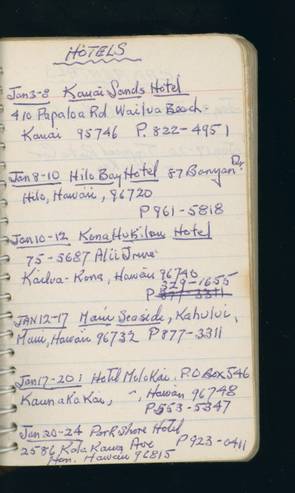 HOTELS
Jan 3-8 Kauai Sands Hotel
410 Papaloa Rd. Wailua Beach
Kauai 95746 P. 822-4951
Jan 8-10 Hilo Bay Hotel 87 Banyan Dr.
Hilo, Hawaii, 96720
P 961-5818
Jan 10-12 Kona Hukilau Hotel
75-5687 Alii Drive
Kailua-Kona, Hawaii 96740
329-1655
P 877-3311
JAN 12-17 Maui Seaside, Kahului,
Maui, Hawaii 96732 P 877-3311
Jan 17-20 Hotel Molokai, P.O Box 546
Kaunakakai, Hawaii 96748
P 553-5347
Jan 20-24 Park Shore Hotel
2586 Kala Kaua Ave P 923-0411
Hon. Hawaii 96815